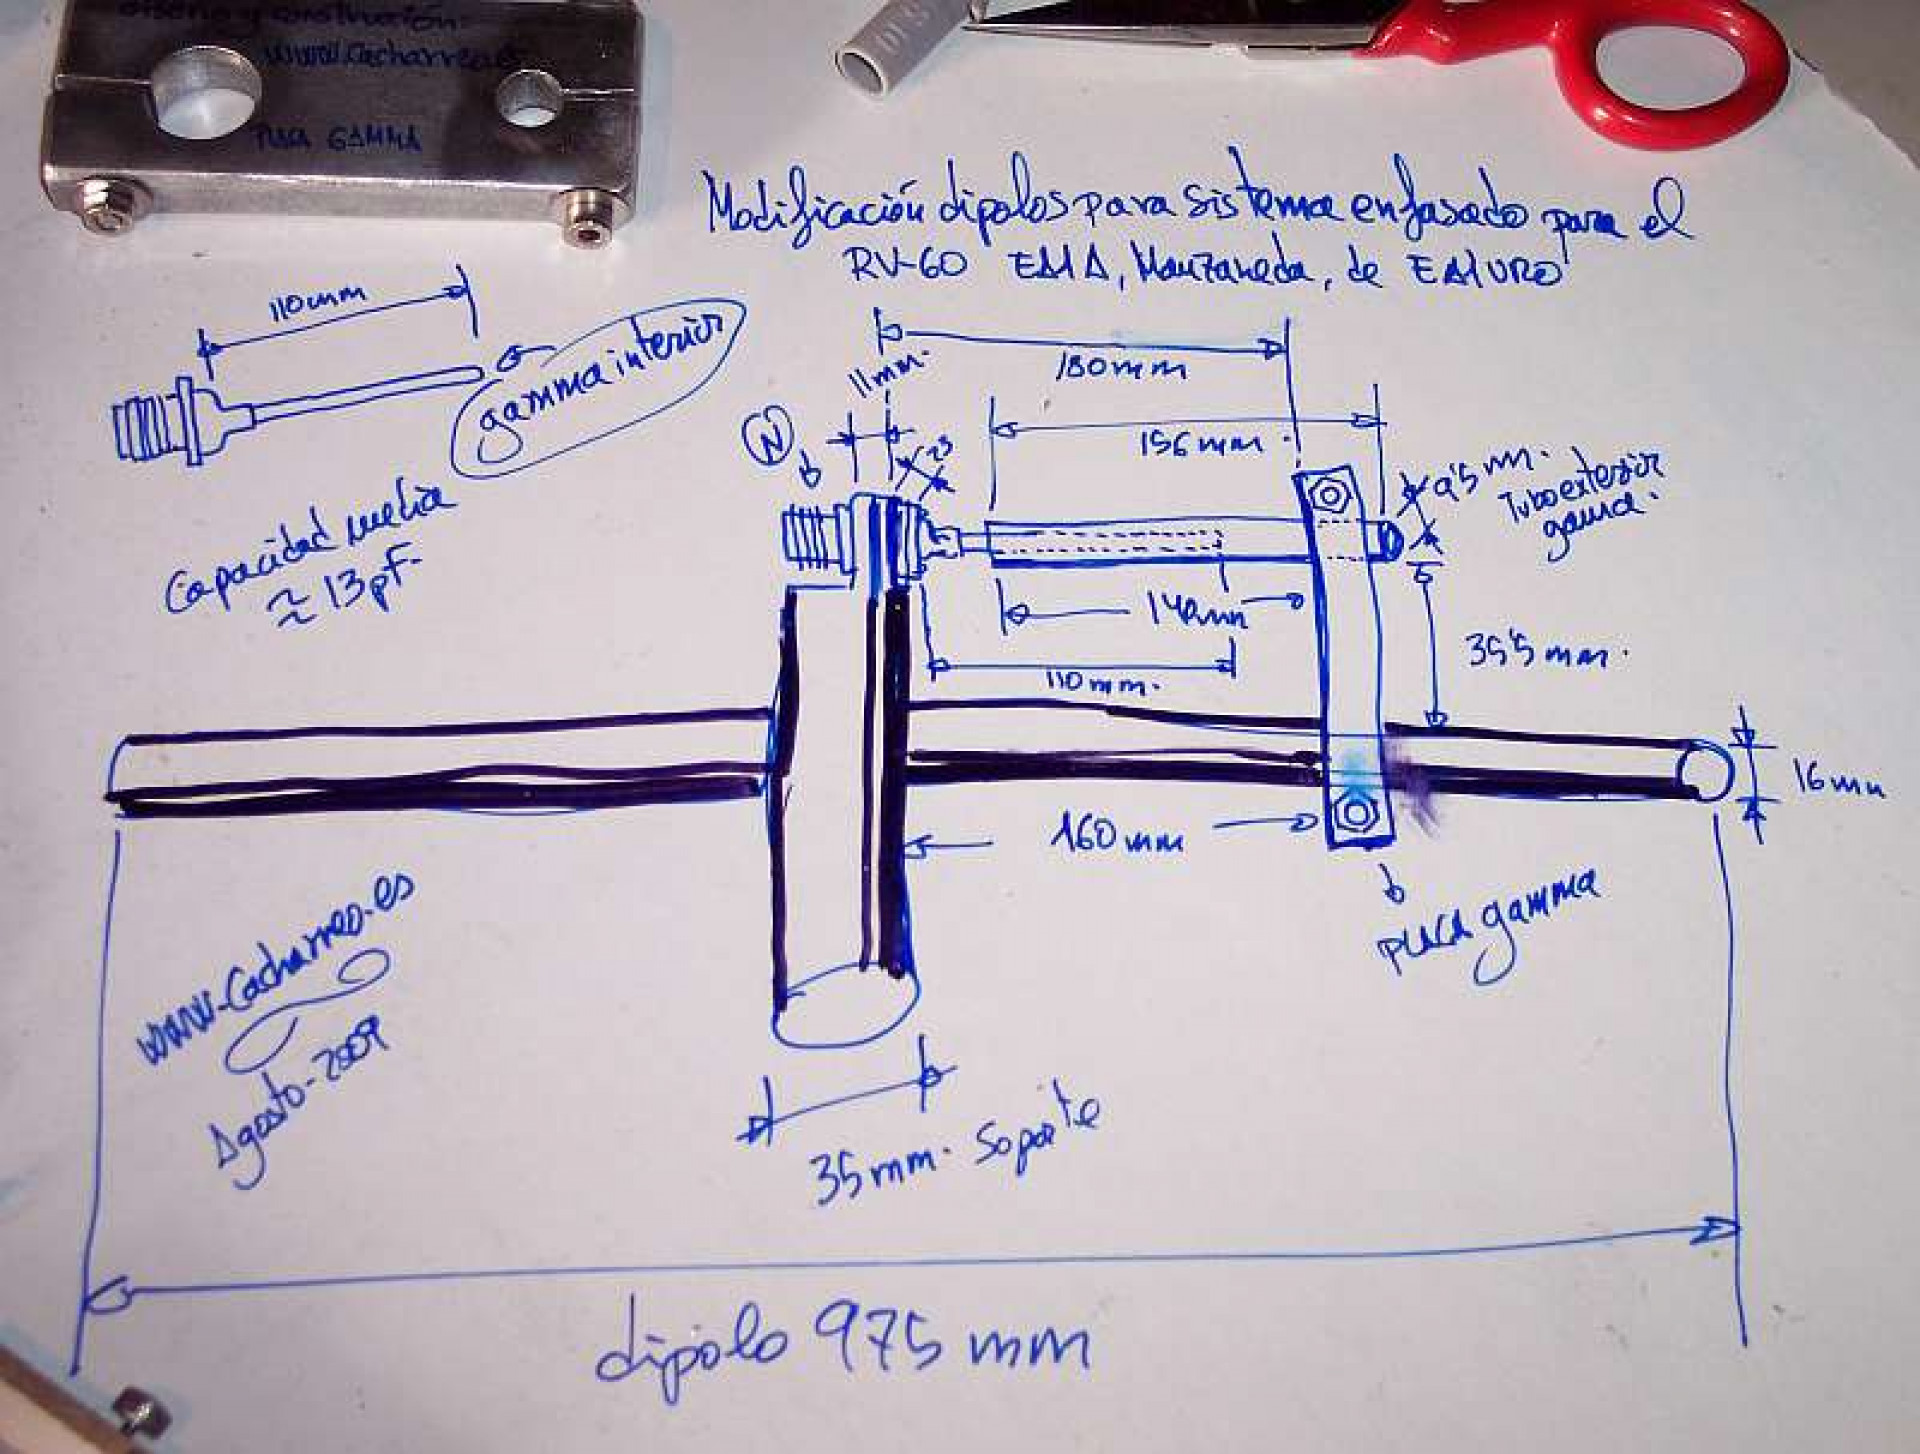 diseño y construcción:
www.cacharreo.es
PLACA GAMMA
Modificación dipolos para sistema enfasado para el
RV-60 EA1A, Manzaneda, de EA1URO
110mm
gamma interior
Capacidad media
≈ 13pF.
180mm
11mm.
156 mm.
N
23
9'5 mm.
Tubo exterior
gamma.
140mm
110mm.
35'5 mm.
16mm
160mm
PLACA gamma
www.Cacharreo.es
Agosto-2009
35mm. Soporte
dipolo 975 mm